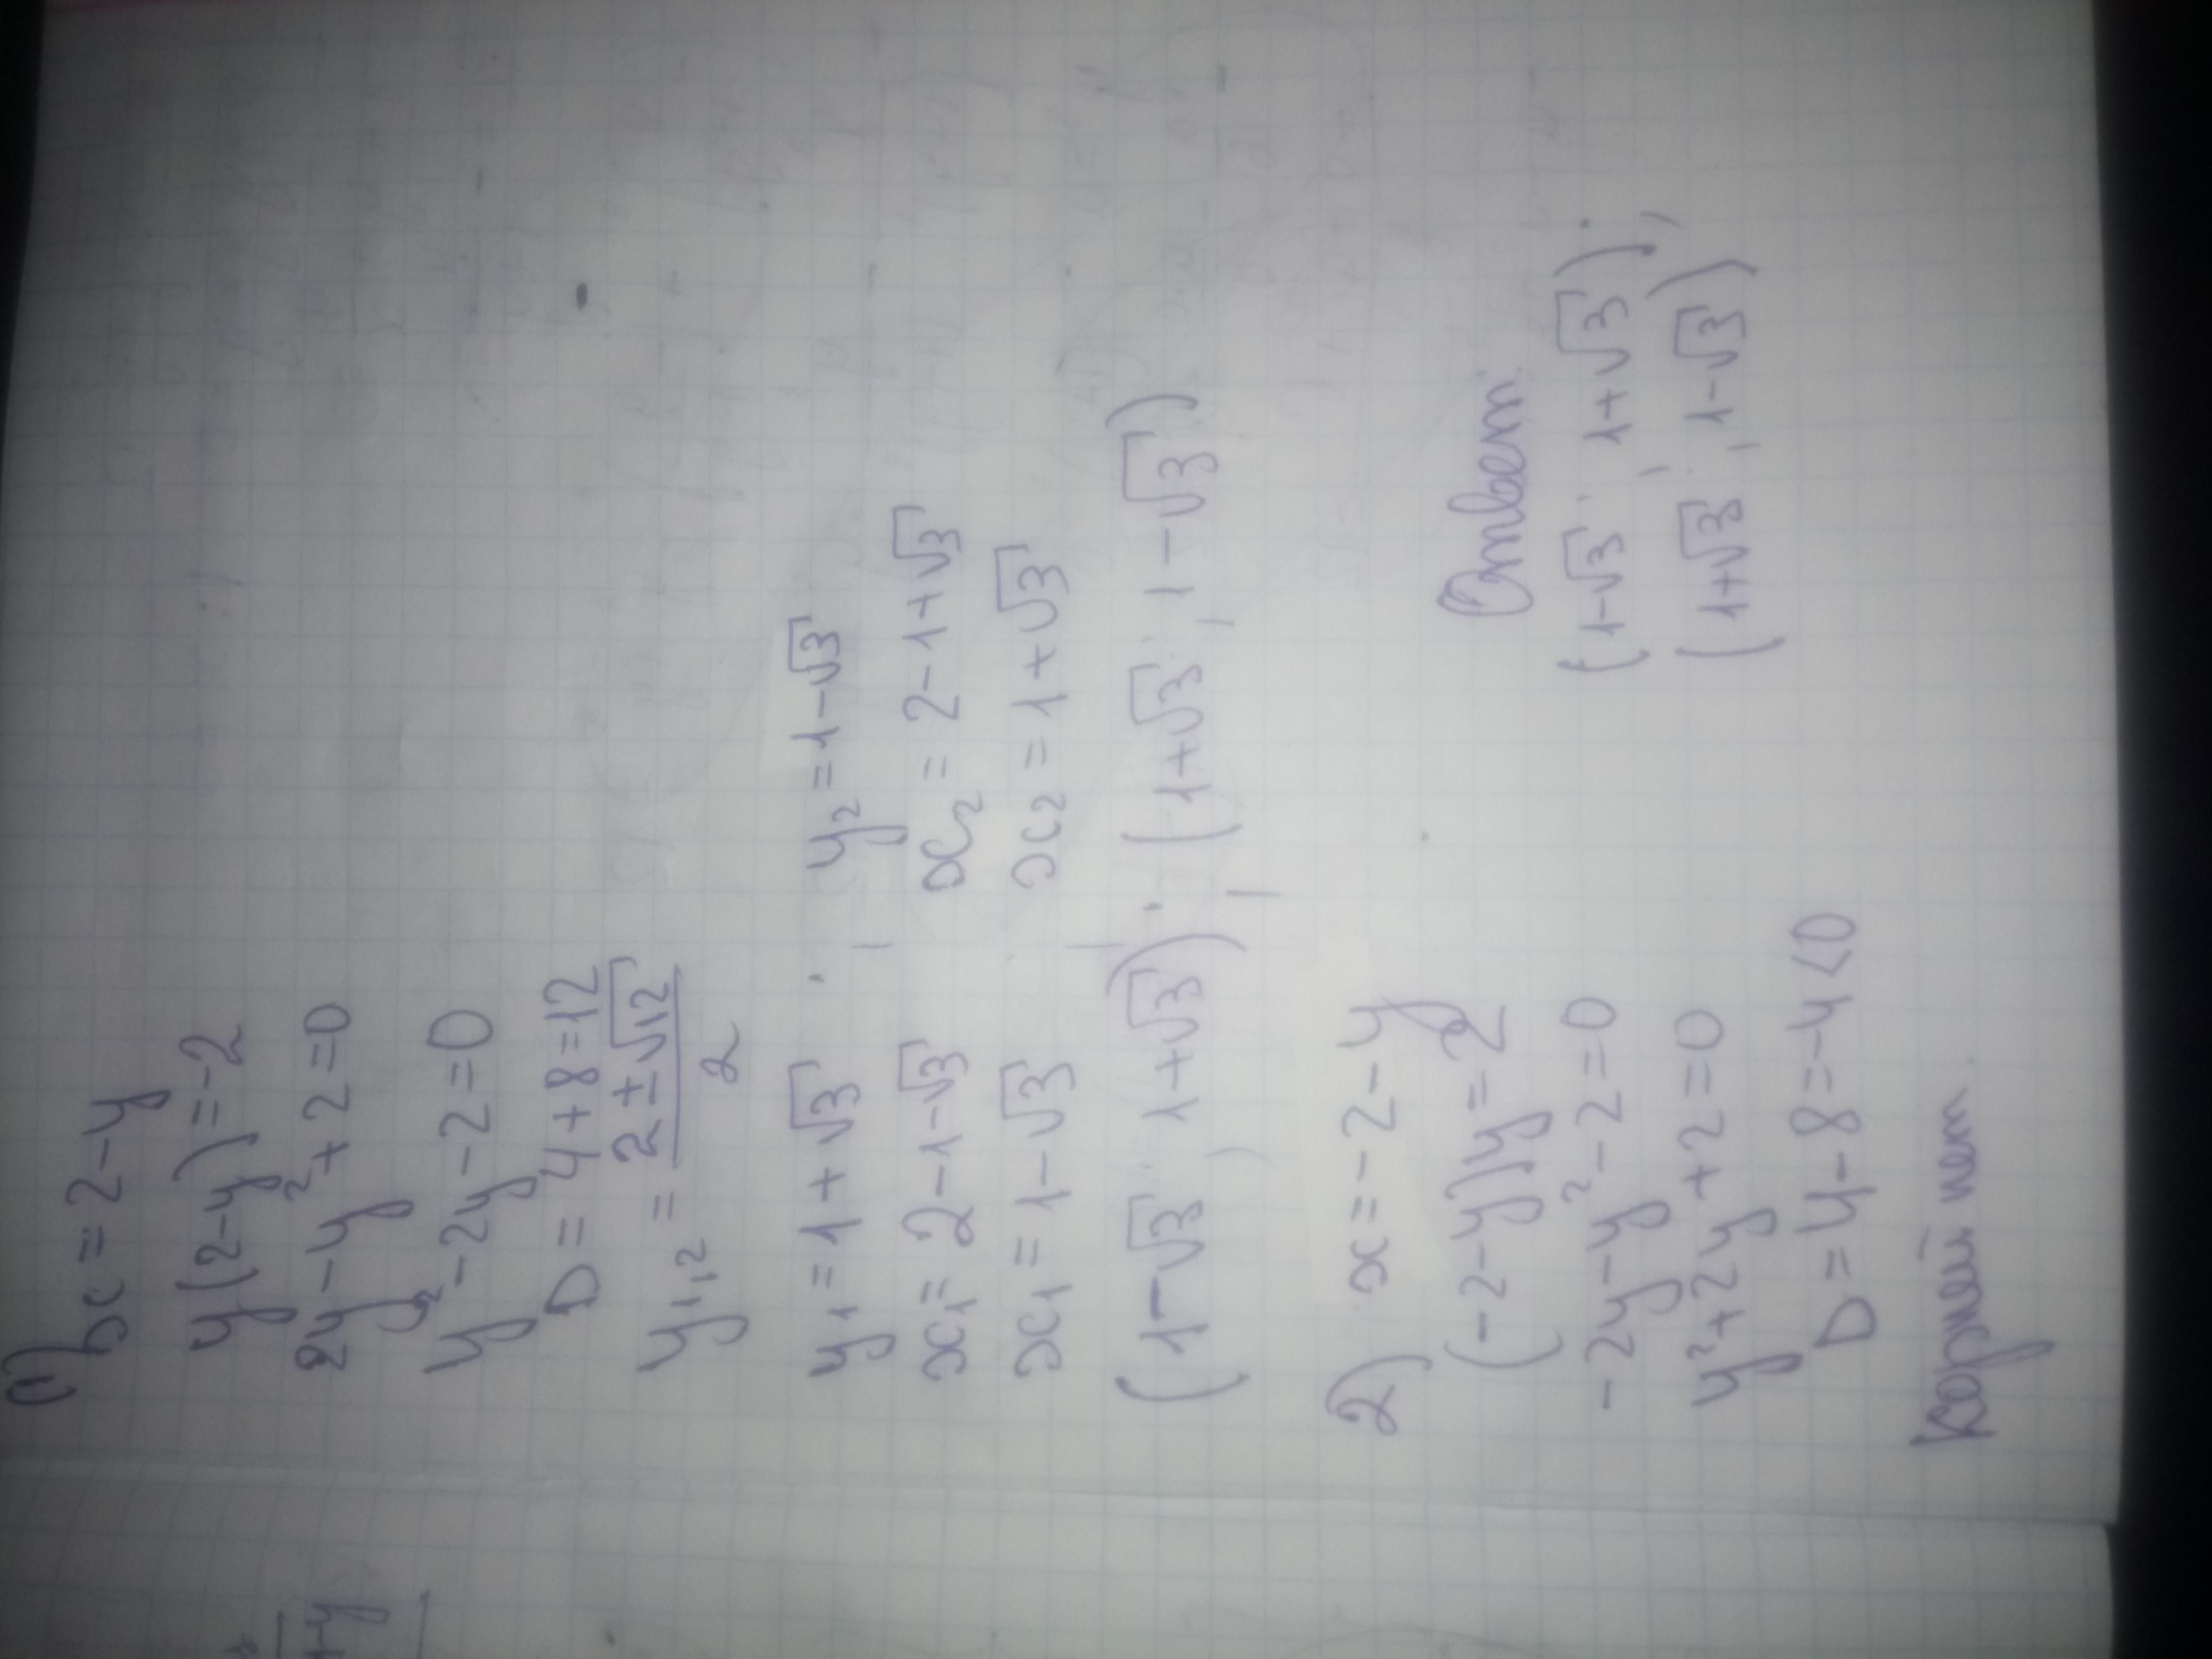 1) x = 2-y
y(2-y) = -2
2y - y² + 2 = 0
y² - 2y - 2 = 0
D = 4 + 8 = 12
y₁,₂ = (2 ± √12) / 2
y₁ = 1 + √3 ; y₂ = 1 - √3
x₁ = 2 - 1 - √3 x₂ = 2 - 1 + √3
x₁ = 1 - √3 ; x₂ = 1 + √3
(1-√3 ; 1+√3) ; (1+√3 ; 1-√3)
2) x = -2 - y
(-2-y)y = 2
-2y - y² - 2 = 0
y² + 2y + 2 = 0
D = 4 - 8 = -4 < 0
Корней нет.
Ответ:
(1-√3 ; 1+√3) ;
(1+√3 ; 1-√3)